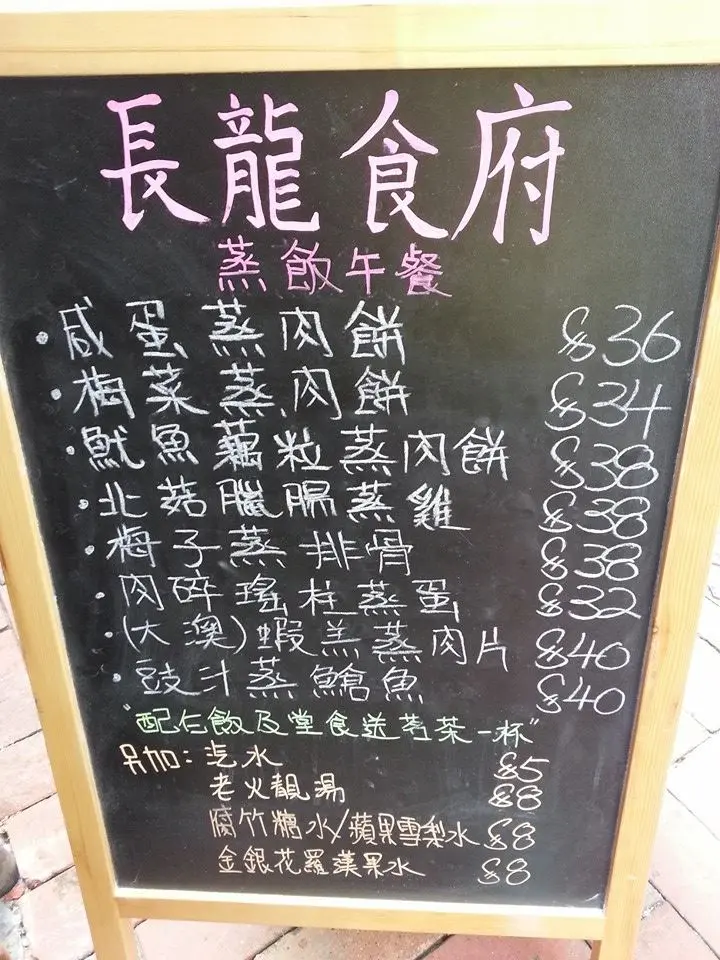 長龍食府
蒸飯午餐
·咸蛋蒸肉餅 $36
·梅菜蒸肉餅 $34
·魷魚藕粒蒸肉餅 $38
·北菇臘腸蒸雞 $38
·梅子蒸排骨 $38
·肉碎瑤柱蒸蛋 $32
·(大澳)蝦羔蒸肉片 $40
·豉汁蒸鱠魚 $40
"配仁飯及堂食送茗茶一杯"
另加:汽水 $5
老火靚湯 $8
腐竹糖水/蘋果雪梨水 $8
金銀花羅漢果水 $8